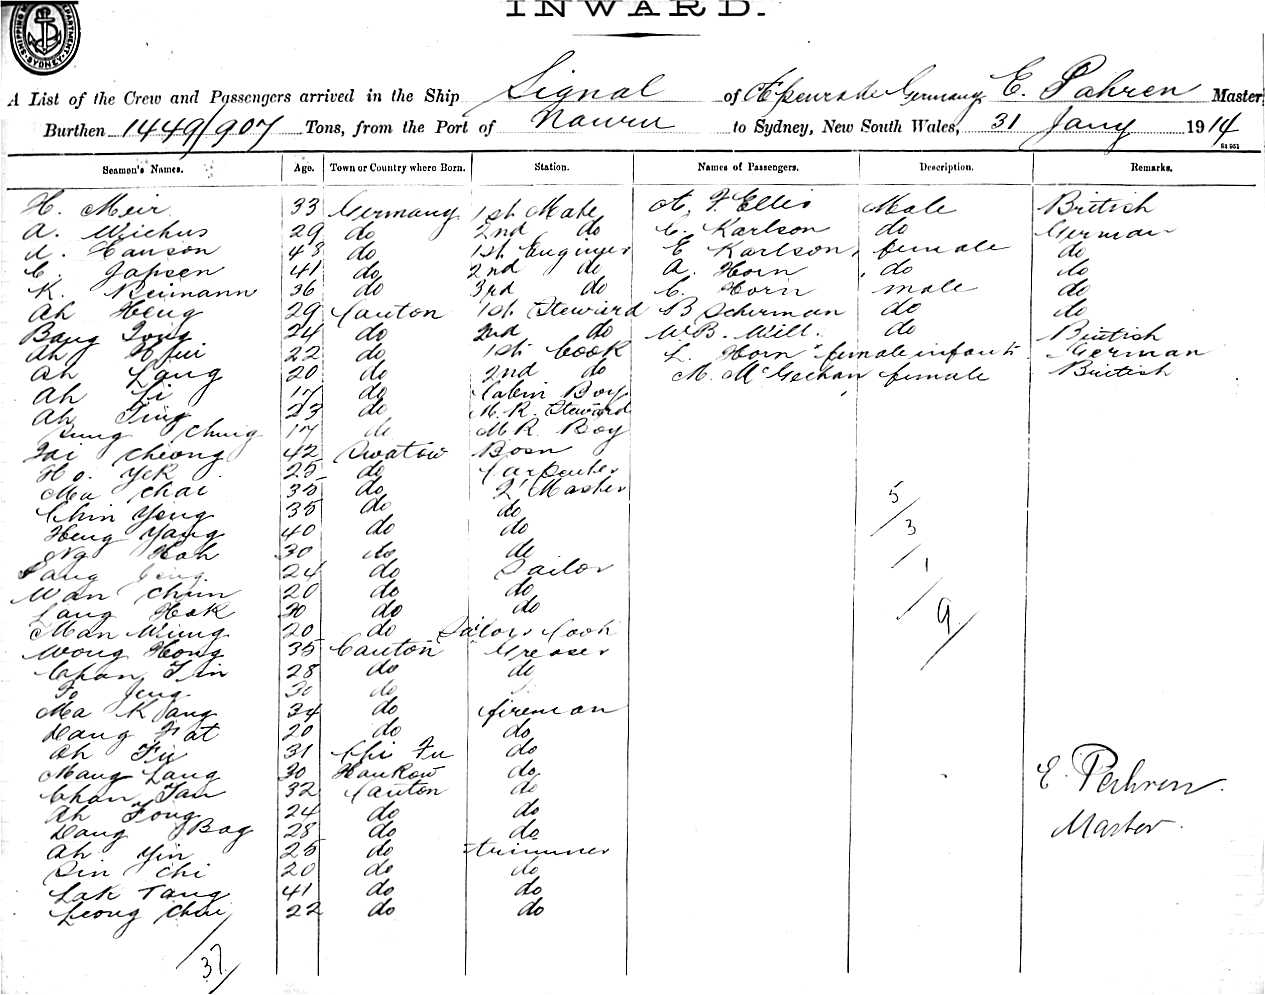 INWARD.
SHIPPING DEPARTMENT SYDNEY
A List of the Crew and Passengers arrived in the Ship Signal of Apenrade Germany, E. Pahren Master
Burthen 1449/907 Tons, from the Port of Nauru to Sydney, New South Wales, 31 Jany 1914
Seamen's Names. Age. Town or Country where Born. Station. Names of Passengers. Description. Remarks.
H. Meir 33 Germany 1st Mate A. F. Ellis Male British
A. Wichus 29 do 2nd do C. Karlson do German
Hanson 43 do 1st Enginer E Karlson, female do
C. Japsen 41 do 2nd do A. Horn do do
K. Reimann 36 do 3rd do C. Horn male do
Ah Heng 29 Canton 1st Steward B Scherman do do
Bang Tong 24 do 2nd do W.B. Will. do British
Ah 22 do 1st Cook L. Horn female infant German
Ah Lang 20 do 2nd do M. McGechan female British
Ah Li 17 do Cabin Boy
Ah Ting 23 do M. R. Steward
Chung 17 do M R. Boy
Tai Cheong 42 Swatow Bosn
Ho. Yek 25 do Carpenter
Ma Chai 35 do Q' Master
Chin Yong 35 do do
Heng Yang 40 do do
Ng Hoh 30 do do
24 do Sailor
Wan Chun 20 do do
Lang Hok 30 do do
Man Wing 20 do Sailors Cook
Wong Hong 35 Canton Greaser
Chan Tin 28 do do
To Jeng 30 do
Ma Kang 34 do fireman
Dang Fat 20 do do
Ah Fu 31 Chi Fu do
Mang Lang 30 Hankow do
Chan Tau 32 Canton do
Ah Fong 24 do do
Dang Bag 28 do do
Ah Yin 25 do trimmer
Sin Chi 20 do do
Lak Tang 41 do do
Leong Chu 22 do do
37
5/3/1/9/
E. Pahren.
Master.